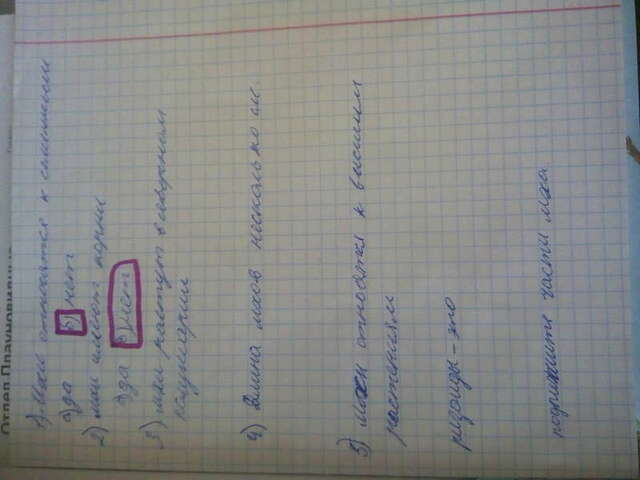 Отдел Плауновидные
1) Мхи относятся к
а) да б) нет
2) мхи имеют корни
а) да б) нет
3) мхи растут в северном
полушарии
4) Длина мхов несколько см.
5) Мхи относятся к высшим
растениям
ризоиды - это
подпишите части мха